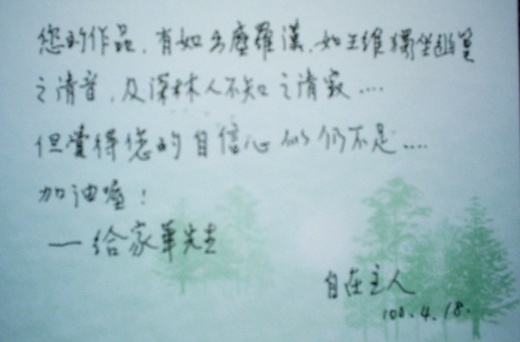 您的作品，有如出塵羅漢，如王維獨坐幽篁
之清音，及深林人不知之清寂‥‥
但覺得您的自信心似仍不足‥‥
加油喔！
—給家華先生
自在主人
100.4.18.